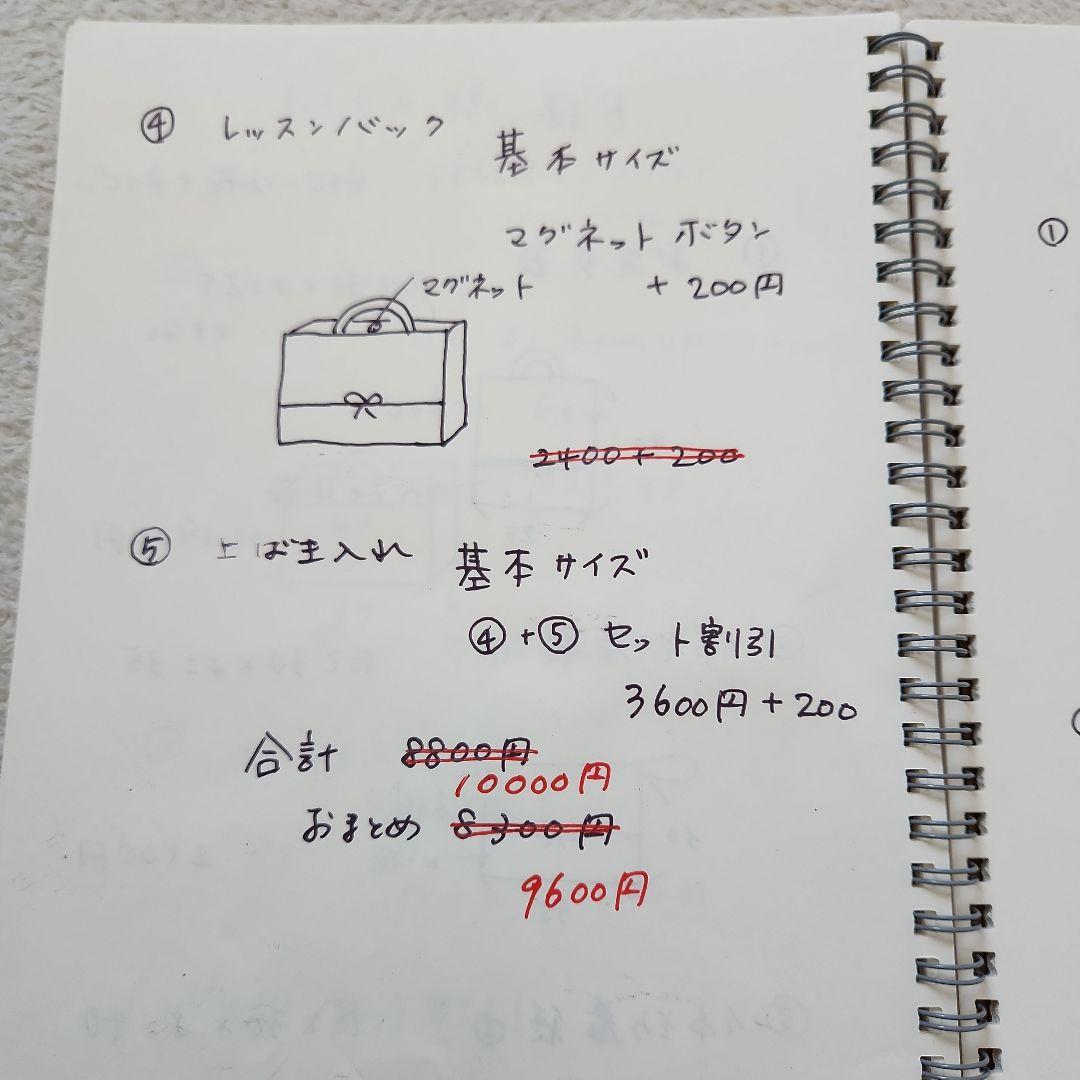 ④ レッスンバック
基本サイズ
マグネットボタン
+ 200円
マグネット
2400 + 200
⑤ 上ばき入れ 基本サイズ
④+⑤ セット割引
3600円 + 200
合計 8800円
10000円
おまとめ 8300円
9600円
①